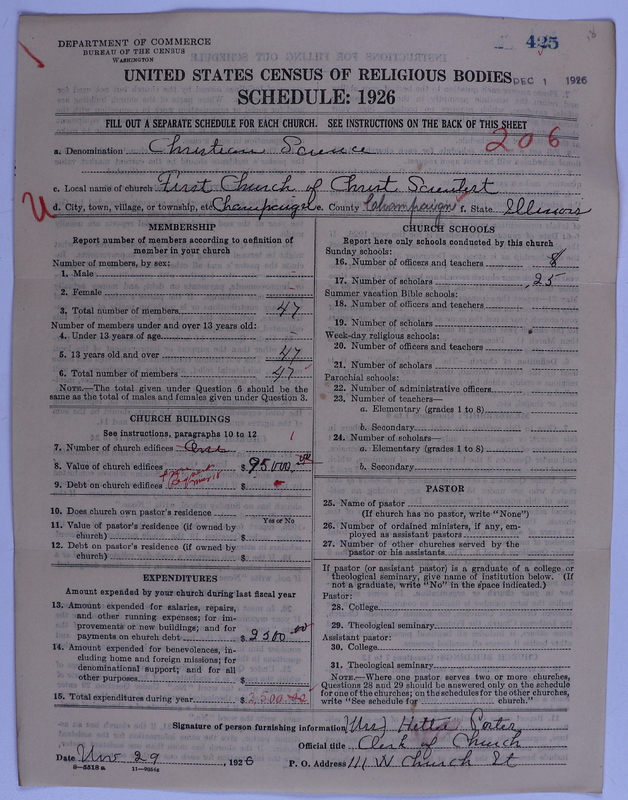 425
DEPARTMENT OF COMMERCE
BUREAU OF THE CENSUS
WASHINGTON
UNITED STATES CENSUS OF RELIGIOUS BODIES
DEC 1 1926
SCHEDULE: 1926
FILL OUT A SEPARATE SCHEDULE FOR EACH CHURCH. SEE INSTRUCTIONS ON THE BACK OF THIS SHEET
206
a. Denomination Christian Science
c. Local name of church First Church of Christ Scientist
d. City, town, village, or township, etc Champaign e. County Champaign f. State Illinois
MEMBERSHIP
Report number of members according to definition of
member in your church
Number of members, by sex:
1. Male
2. Female
3. Total number of members 47
Number of members under and over 13 years old:
4. Under 13 years of age
5. 13 years old and over 47
6. Total number of members 47
NOTE.—The total given under Question 6 should be
the same as the total of males and females given under Question 3.
CHURCH BUILDINGS
See instructions, paragraphs 10 to 12
7. Number of church edifices One
8. Value of church edifices $95000.00
9. Debt on church edifices $
10. Does church own pastor's residence
Yes or No
11. Value of pastor's residence (if owned by
church) $
12. Debt on pastor's residence (if owned by
church) $
EXPENDITURES
Amount expended by your church during last fiscal year
13. Amount expended for salaries, repairs,
and other running expenses; for im-
provements or new buildings; and for
payments on church debt $2500.00
14. Amount expended for benevolences, in-
cluding home and foreign missions; for
denominational support; and for all
other purposes $
15. Total expenditures during year $2500.00
CHURCH SCHOOLS
Report here only schools conducted by this church
Sunday schools:
16. Number of officers and teachers 8
17. Number of scholars 25
Summer vacation Bible schools:
18. Number of officers and teachers
19. Number of scholars
Week-day religious schools:
20. Number of officers and teachers
21. Number of scholars
Parochial schools:
22. Number of administrative officers
23. Number of teachers—
a. Elementary (grades 1 to 8)
b. Secondary
24. Number of scholars—
a. Elementary (grades 1 to 8)
b. Secondary
PASTOR
25. Name of pastor
(If church has no pastor, write "None")
26. Number of ordained ministers, if any, em-
ployed as assistant pastors
27. Number of other churches served by the
pastor or his assistants
If pastor (or assistant pastor) is a graduate of a college or
theological seminary, give name of institution below. (If
not a graduate, write "No" in the space indicated.)
Pastor:
28. College
29. Theological seminary
Assistant pastor:
30. College
31. Theological seminary
NOTE.—Where one pastor serves two or more churches,
Questions 28 and 29 should be answered only on the schedule
for one of the churches; on the schedules for the other churches,
write "See schedule for church."
Signature of person furnishing information (Mrs) Hettie Porter
Official title Clerk of Church
Date Nov 29, 1926 P. O. Address 111 W Church St
8—5518 a 11—9264a